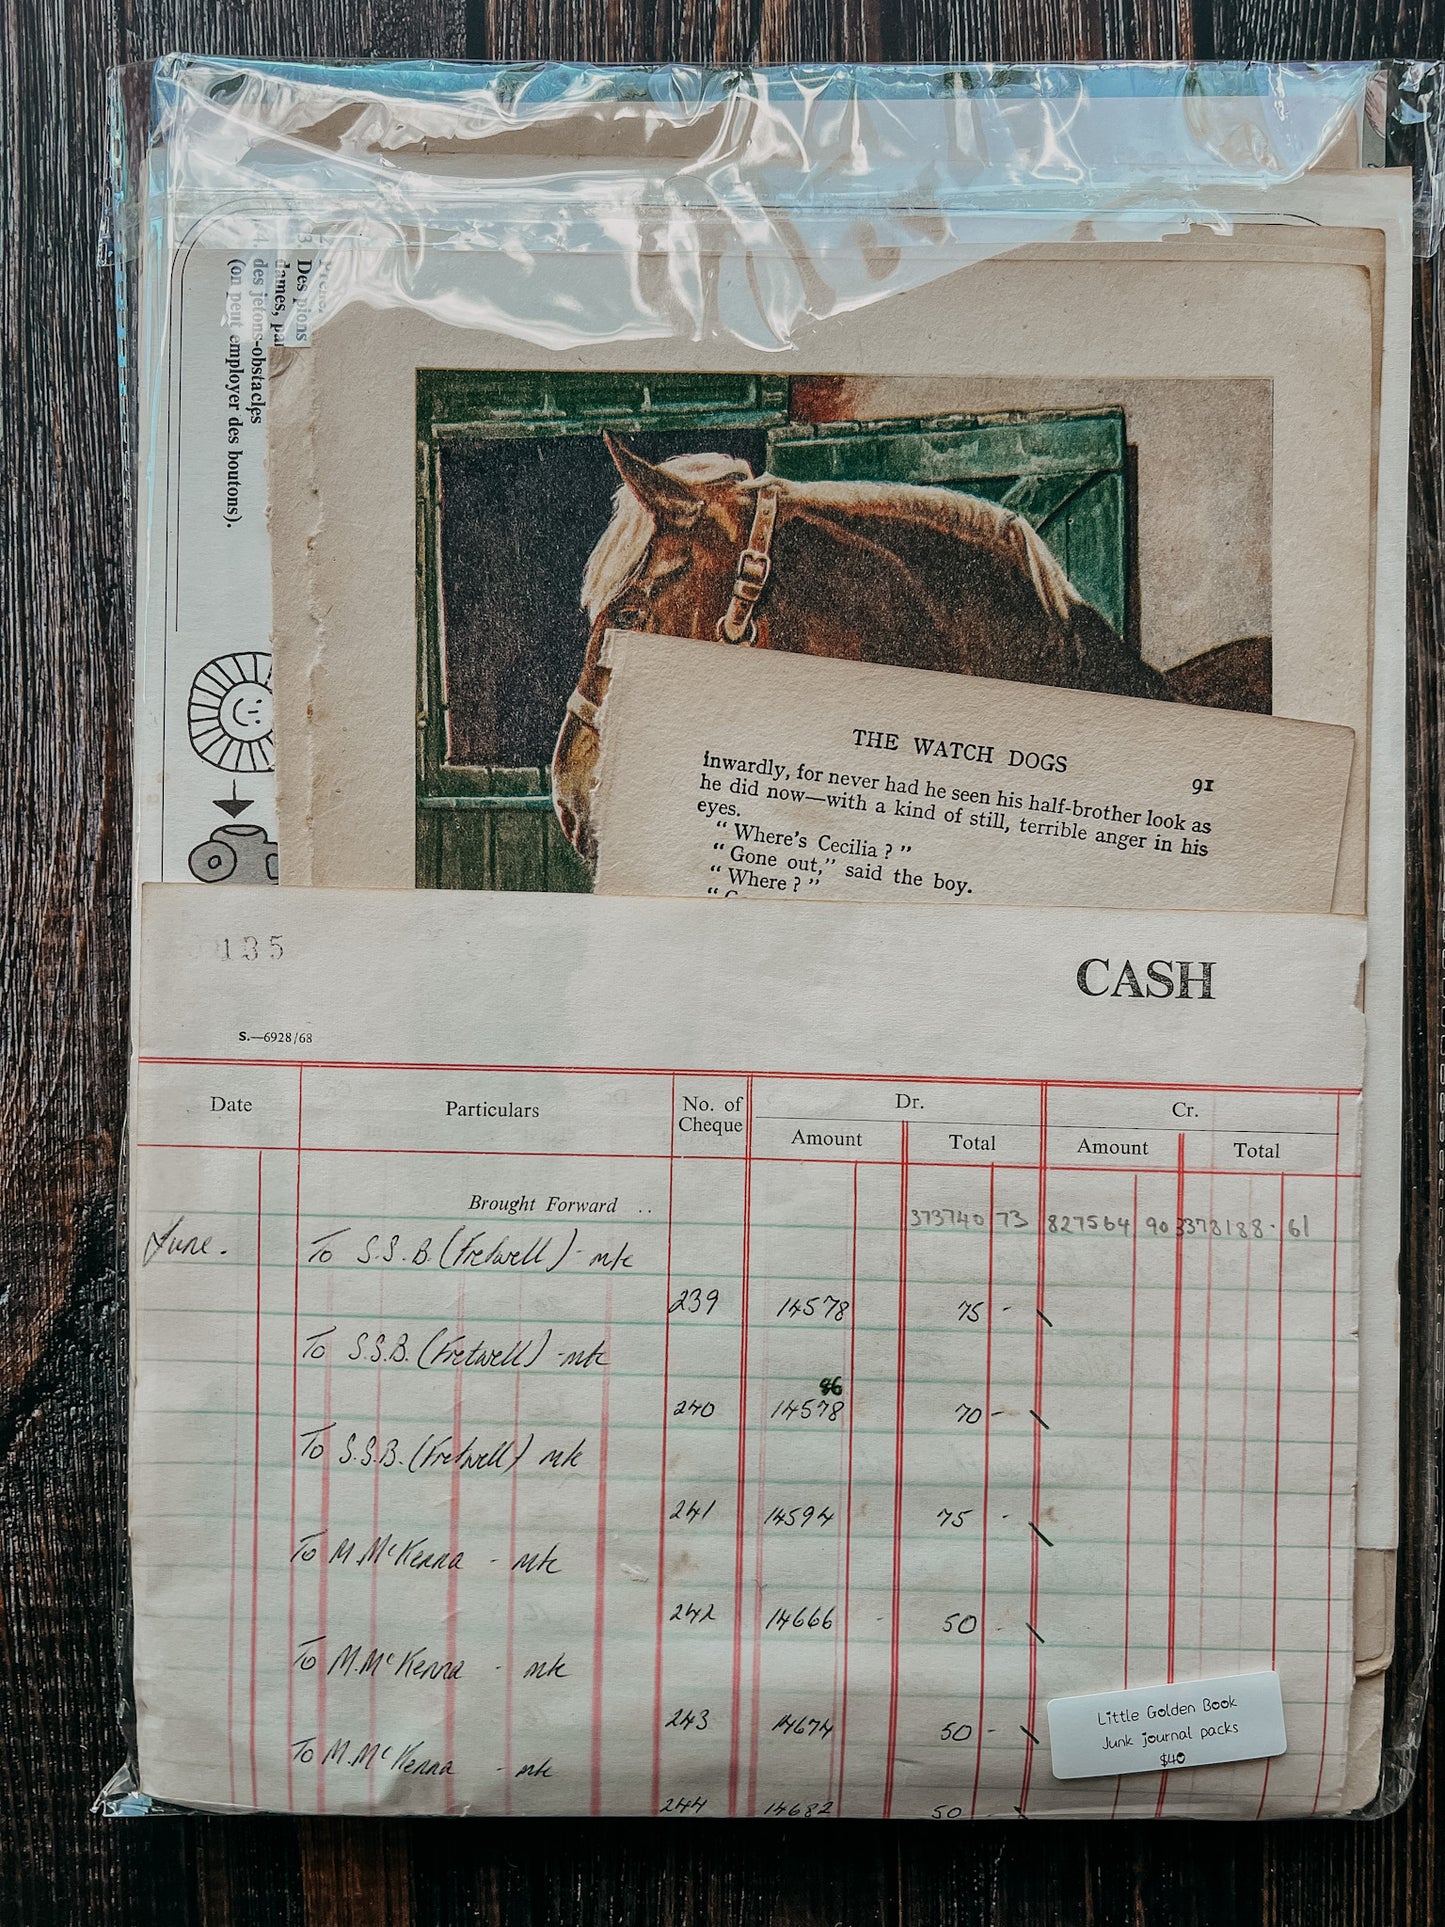 3 Des pions
dames, pa
4. des jetons-obstacles
(on peut employer des boutons).
THE WATCH DOGS
91
inwardly, for never had he seen his half-brother look as
he did now—with a kind of still, terrible anger in his
eyes.
“ Where's Cecilia ? ”
“ Gone out,” said the boy.
“ Where ? ”
135
CASH
S.—6928/68
Date Particulars No. of Cheque Dr. Cr.
Amount Total Amount Total
Brought Forward .. 373740 73 827564 90 3378188 - 61
June. To S.S.B. (Fretwell) - mtc
239 14578 75 -
To S.S.B. (Fretwell) - mtc
86
240 14578 70 -
To S.S.B. (Fretwell) mtc
241 14594 75 -
To M. McKenna - mtc
242 14666 - 50 -
To M. McKenna - mtc
243 14674 50 -
To M. McKenna - mtc
244 14682 50 -
Little Golden Book
Junk journal packs
$40